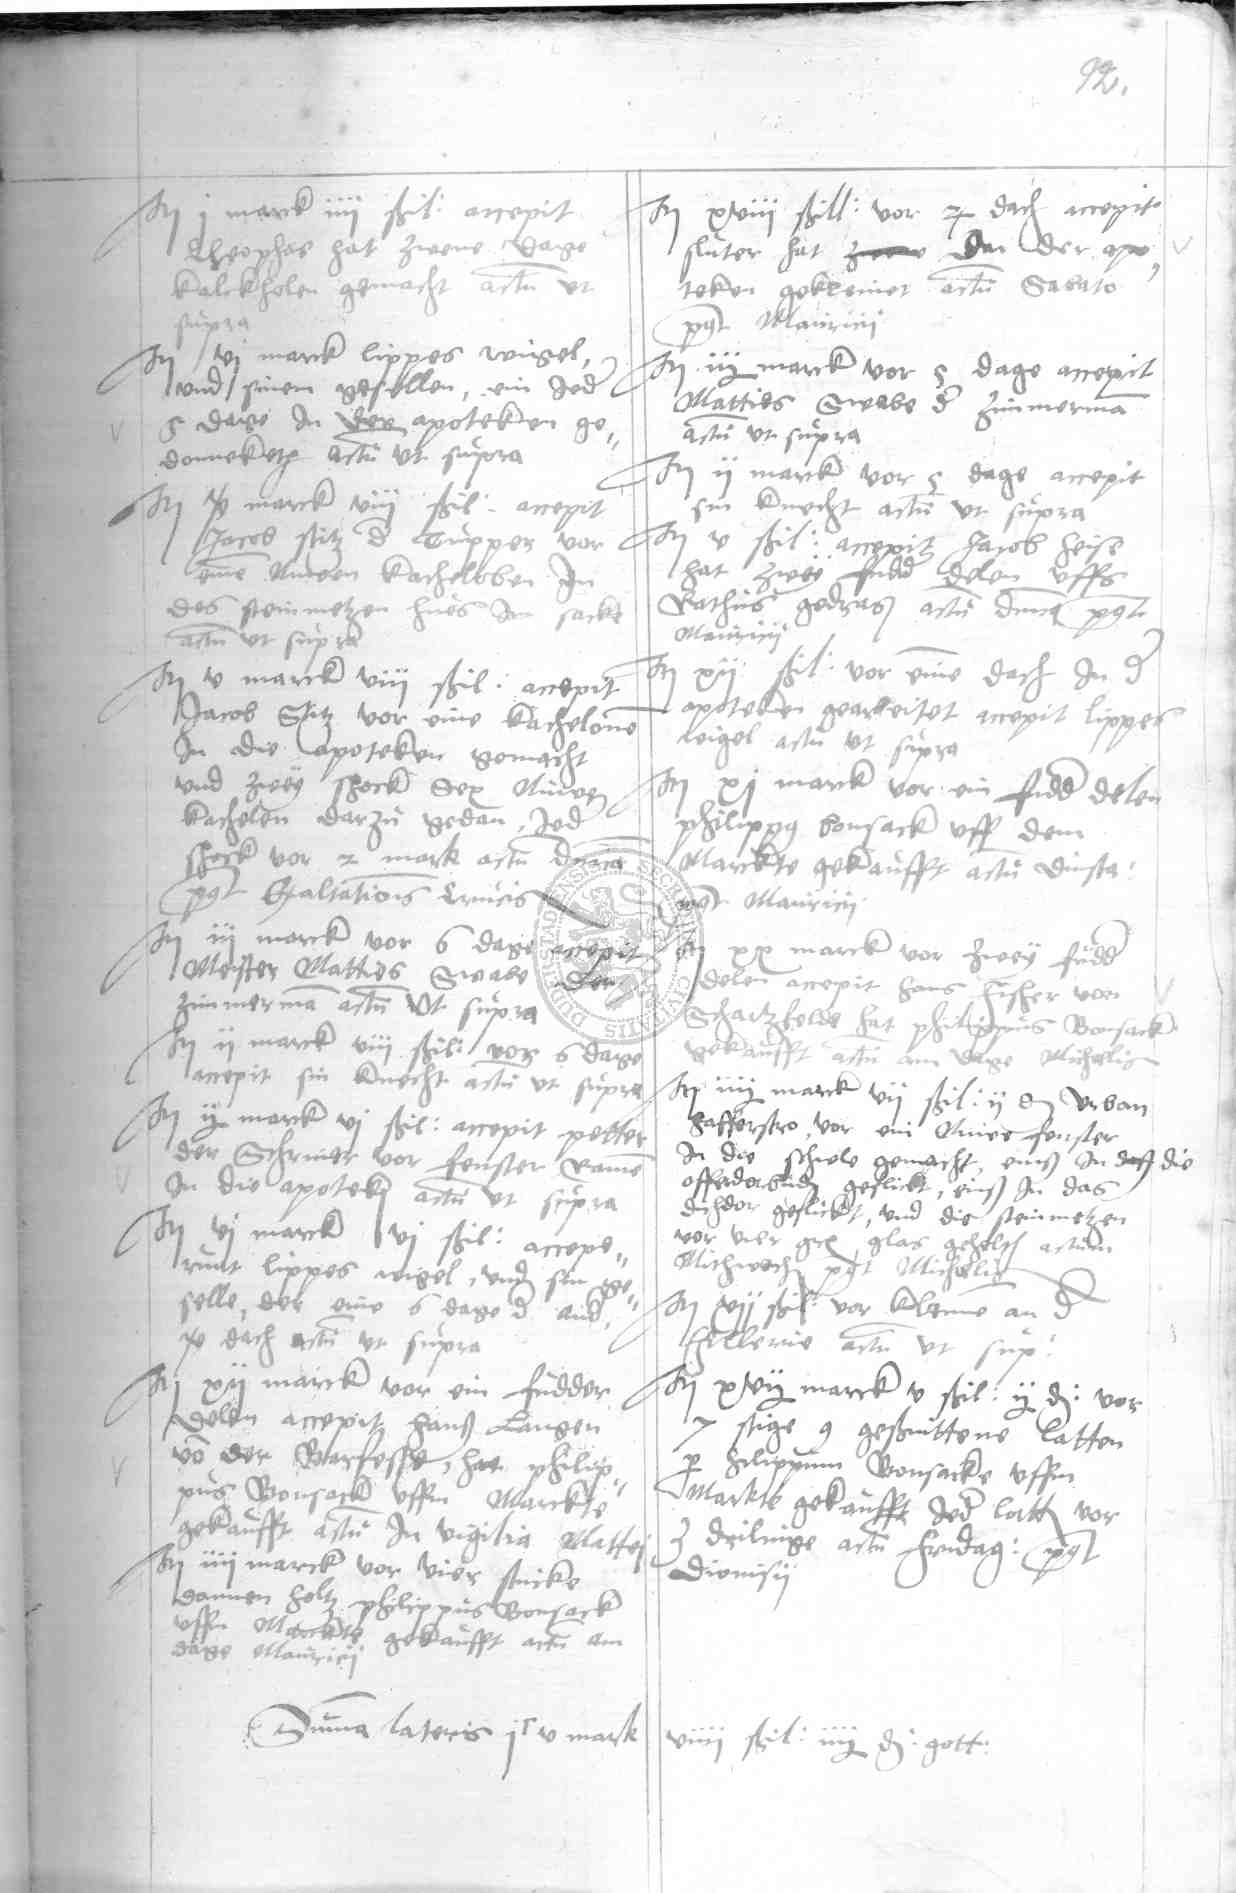 92.
Itm j marck iiij ßil: accepit
Theophas hat zwene dage
kalckholen gemacht actu ut
supra
Itm vj marck lippes wigel,
und sinem gesellen, ein Jed
5 dage In der apoteken ge„
donneket actu ut supra
Itm marck viij ßil: accepit
Jacob stitz d Tüpper vor
eine Nuwen kacheloben In
des steinmetzen hues Im sacke
actu ut supra
Itm v marck viij ßil: accepit
Jacob Stitz vor eine kacheloue
In die apoteken gemacht
und zwey schock Sex Nuwe
kachelen darzu gedan, Jed
schock vor 2 mark actu dnica
post Exaltationis Crucis
Itm iij marck vor 6 dage accepit
Meister Matties Swabe der
zimmerma actu ut supra
Itm ij marck viij ßil: vor 6 dage
accepit sin knecht actu ut supra
Itm ij marck vj ßil: accepit petter
der Schriner vor fenster Rame
In die apotek actu ut supra
Itm vj marck vj ßil: accepe„
runt lippes wigel, und sin ge„
selle, der eine 6 dage d and,
dach actu ut supra
Itm xij marck vor ein fudder
delen accepit hanß Langen
vo der, hat philip„
pus Bonsack uffm Marckte
gekaufft actu In vigilia Mattei
Itm iiij marck vor vier stucke
dannen holtz philippus Bonsack
uffm Marckte gekaufft actu am
dage Mauricij
Itm xviij ßill: vor 7 dach accepit
sluter hat an der apo„
teken gekleinet actu Sabato
post Mauricij
Itm iij marck vor 5 dage accepit
Matties Swabe d zimmerma
actu ut supra
Itm ij marck vor 5 dage accepit
sin knecht actu ut supra
Itm v ßil: accepit Jacob heise
hat zwey fudd delen uffs
Rathus actu dnica post
Mauricij
Itm xij ßil: vor eine dach In d
apoteken gearbeitet accepit lippes
wigel actu ut supra
Itm xj marck vor ein fudd delen
philippus bonsack uff dem
Marckte gekaufft actu dinsta:
post Mauricij
Itm xx marck vor zwey fudd
delen accepit hans fisher von
Schartzfelde hat philippus Bonsack
gekaufft actu am dage Michelis
Itm iiij marck vij ßil: ij Urban
hafferstro, vor ein Nuwe fenster
In die schiele gemacht, einß In die
geflickt, einß In das
geflickt, und die steinmetzen
vor vier glas actum
Mithwech post Michelis
Itm vij ßil: vor an d
actu ut sup:
Itm xvij marck v ßil: ij d: vor
7 stige 9 geßnittene latten
p filippum Bonsacke uffm
Markte gekaufft Jed latt vor
3 drilinge actu fridag: post
Dionisij
Summa lateris jc v mark viiij ßil: iiij d: gott:
SECRETVM CIVITATIS DVDERSTADENSIS